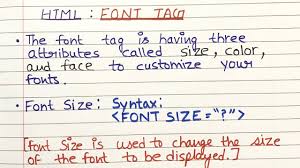 HTML : FONT TAG
• The font tag is having three
attributes called size, color,
and face to customize your
fonts.
• Font Size: Syntax:
<FONT SIZE="?">
[font Size is used to change the size
of the font to be displayed.]